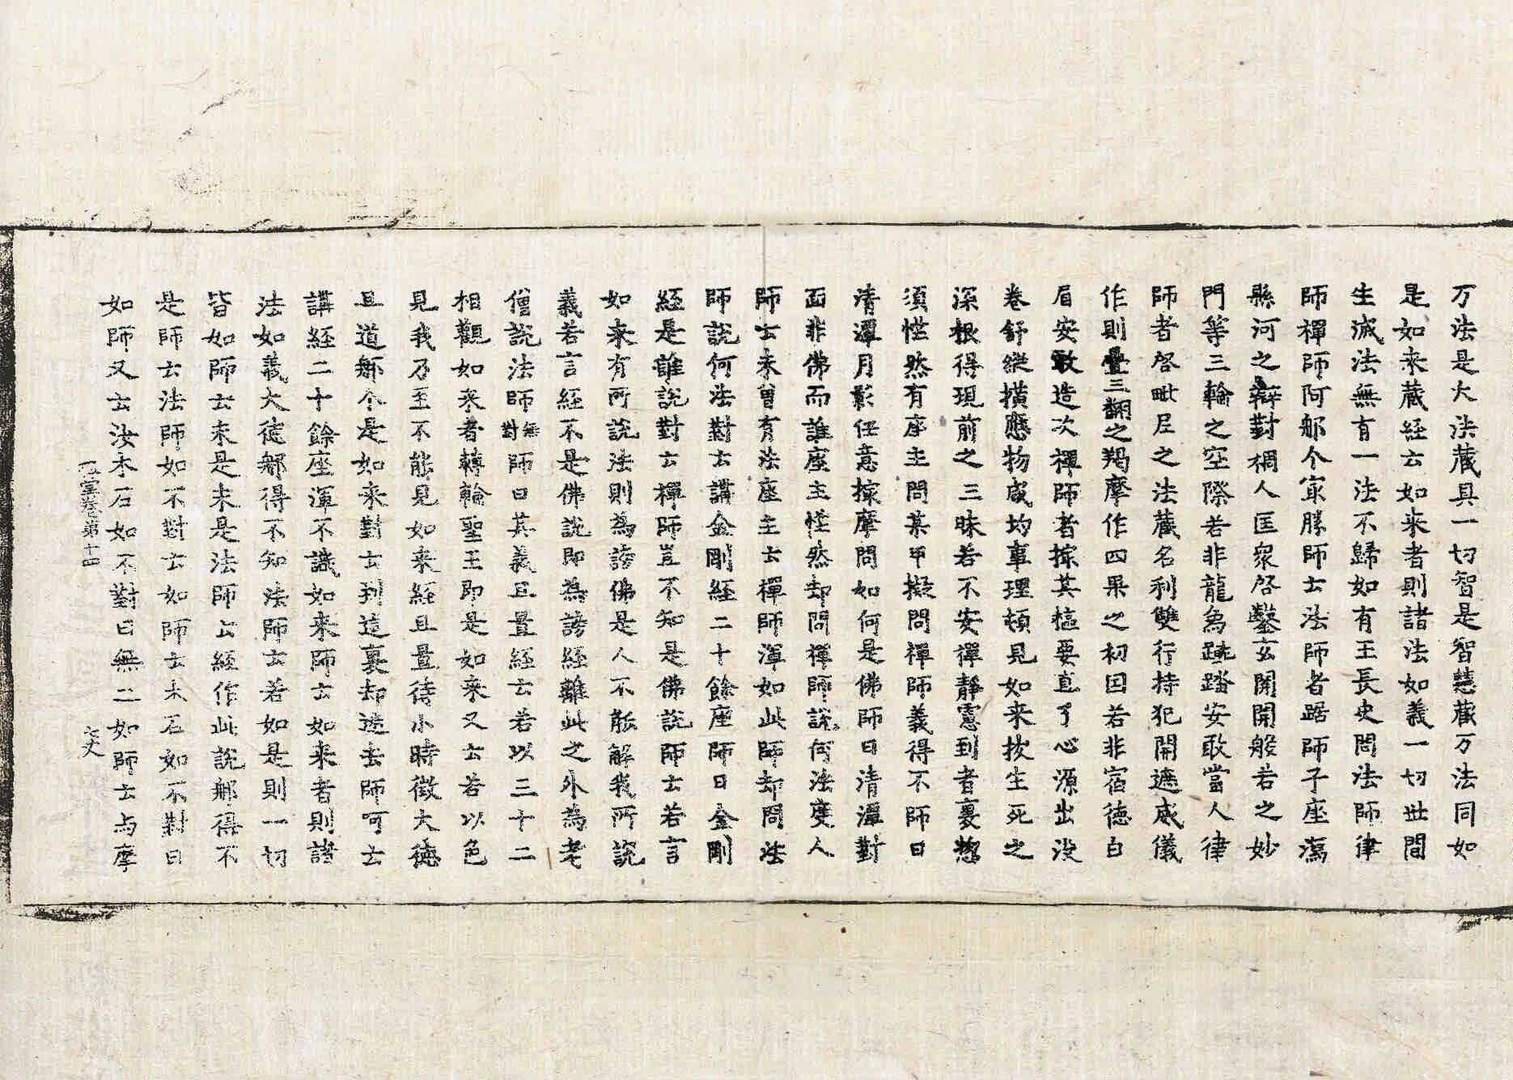 万法是大法藏具一切智是智慧藏万法同如
是如来藏経云如来者則諸法如義一切世間
生滅法無有一法不歸如有王長史問法師律
師禪師阿那个冣勝師士法師者踞師子座瀉
縣河之辯對稠人匡衆啓鑿玄開開般若之妙
門等三輪之空際若非龍爲䟽踏安敢當人律
師者啓毗尼之法藏名利雙行持犯開遮威儀
作則疊三翻之羯摩作四果之初因若非宿德白
眉安敢造次禪師者採其樞要直了心源出没
卷舒縱横應物咸均事理頓見如来拔生死之
深根得現前之三昧若不安禪靜慮到者裏惣
須恾然有座主問某甲擬問禪師義得不師曰
清潭月影任意撮摩問如何是佛師曰清潭對
面非佛而誰座主恾然却問禪師說何法度人
師士未曽有法座主士禪師渾如此師却問法
師說何法對士講金剛經二十餘座師曰金剛
経是誰說對士禪師豈不知是佛說師士若言
如来有所說法則為謗佛是人不能解我所說
義若言経不是佛說即為謗経離此之外為老
僧說法師無對師曰其義且置経云若以三十二
相觀如来者轉輪聖王即是如来又士若以色
見我乃至不能見如来経且置待小時徴大德
且道那个是如来對士到這裏却迷去師呵士
講経二十餘座渾不識如来師士如来者則諸
法如義大德那得不知法師士若如是則一切
皆如師士未是未是法師士経作此說那得不
是師士法師如不對士如師士木石如不對曰
如師又士汝木石如不對曰無二如師士与摩
卷第十四
七丈